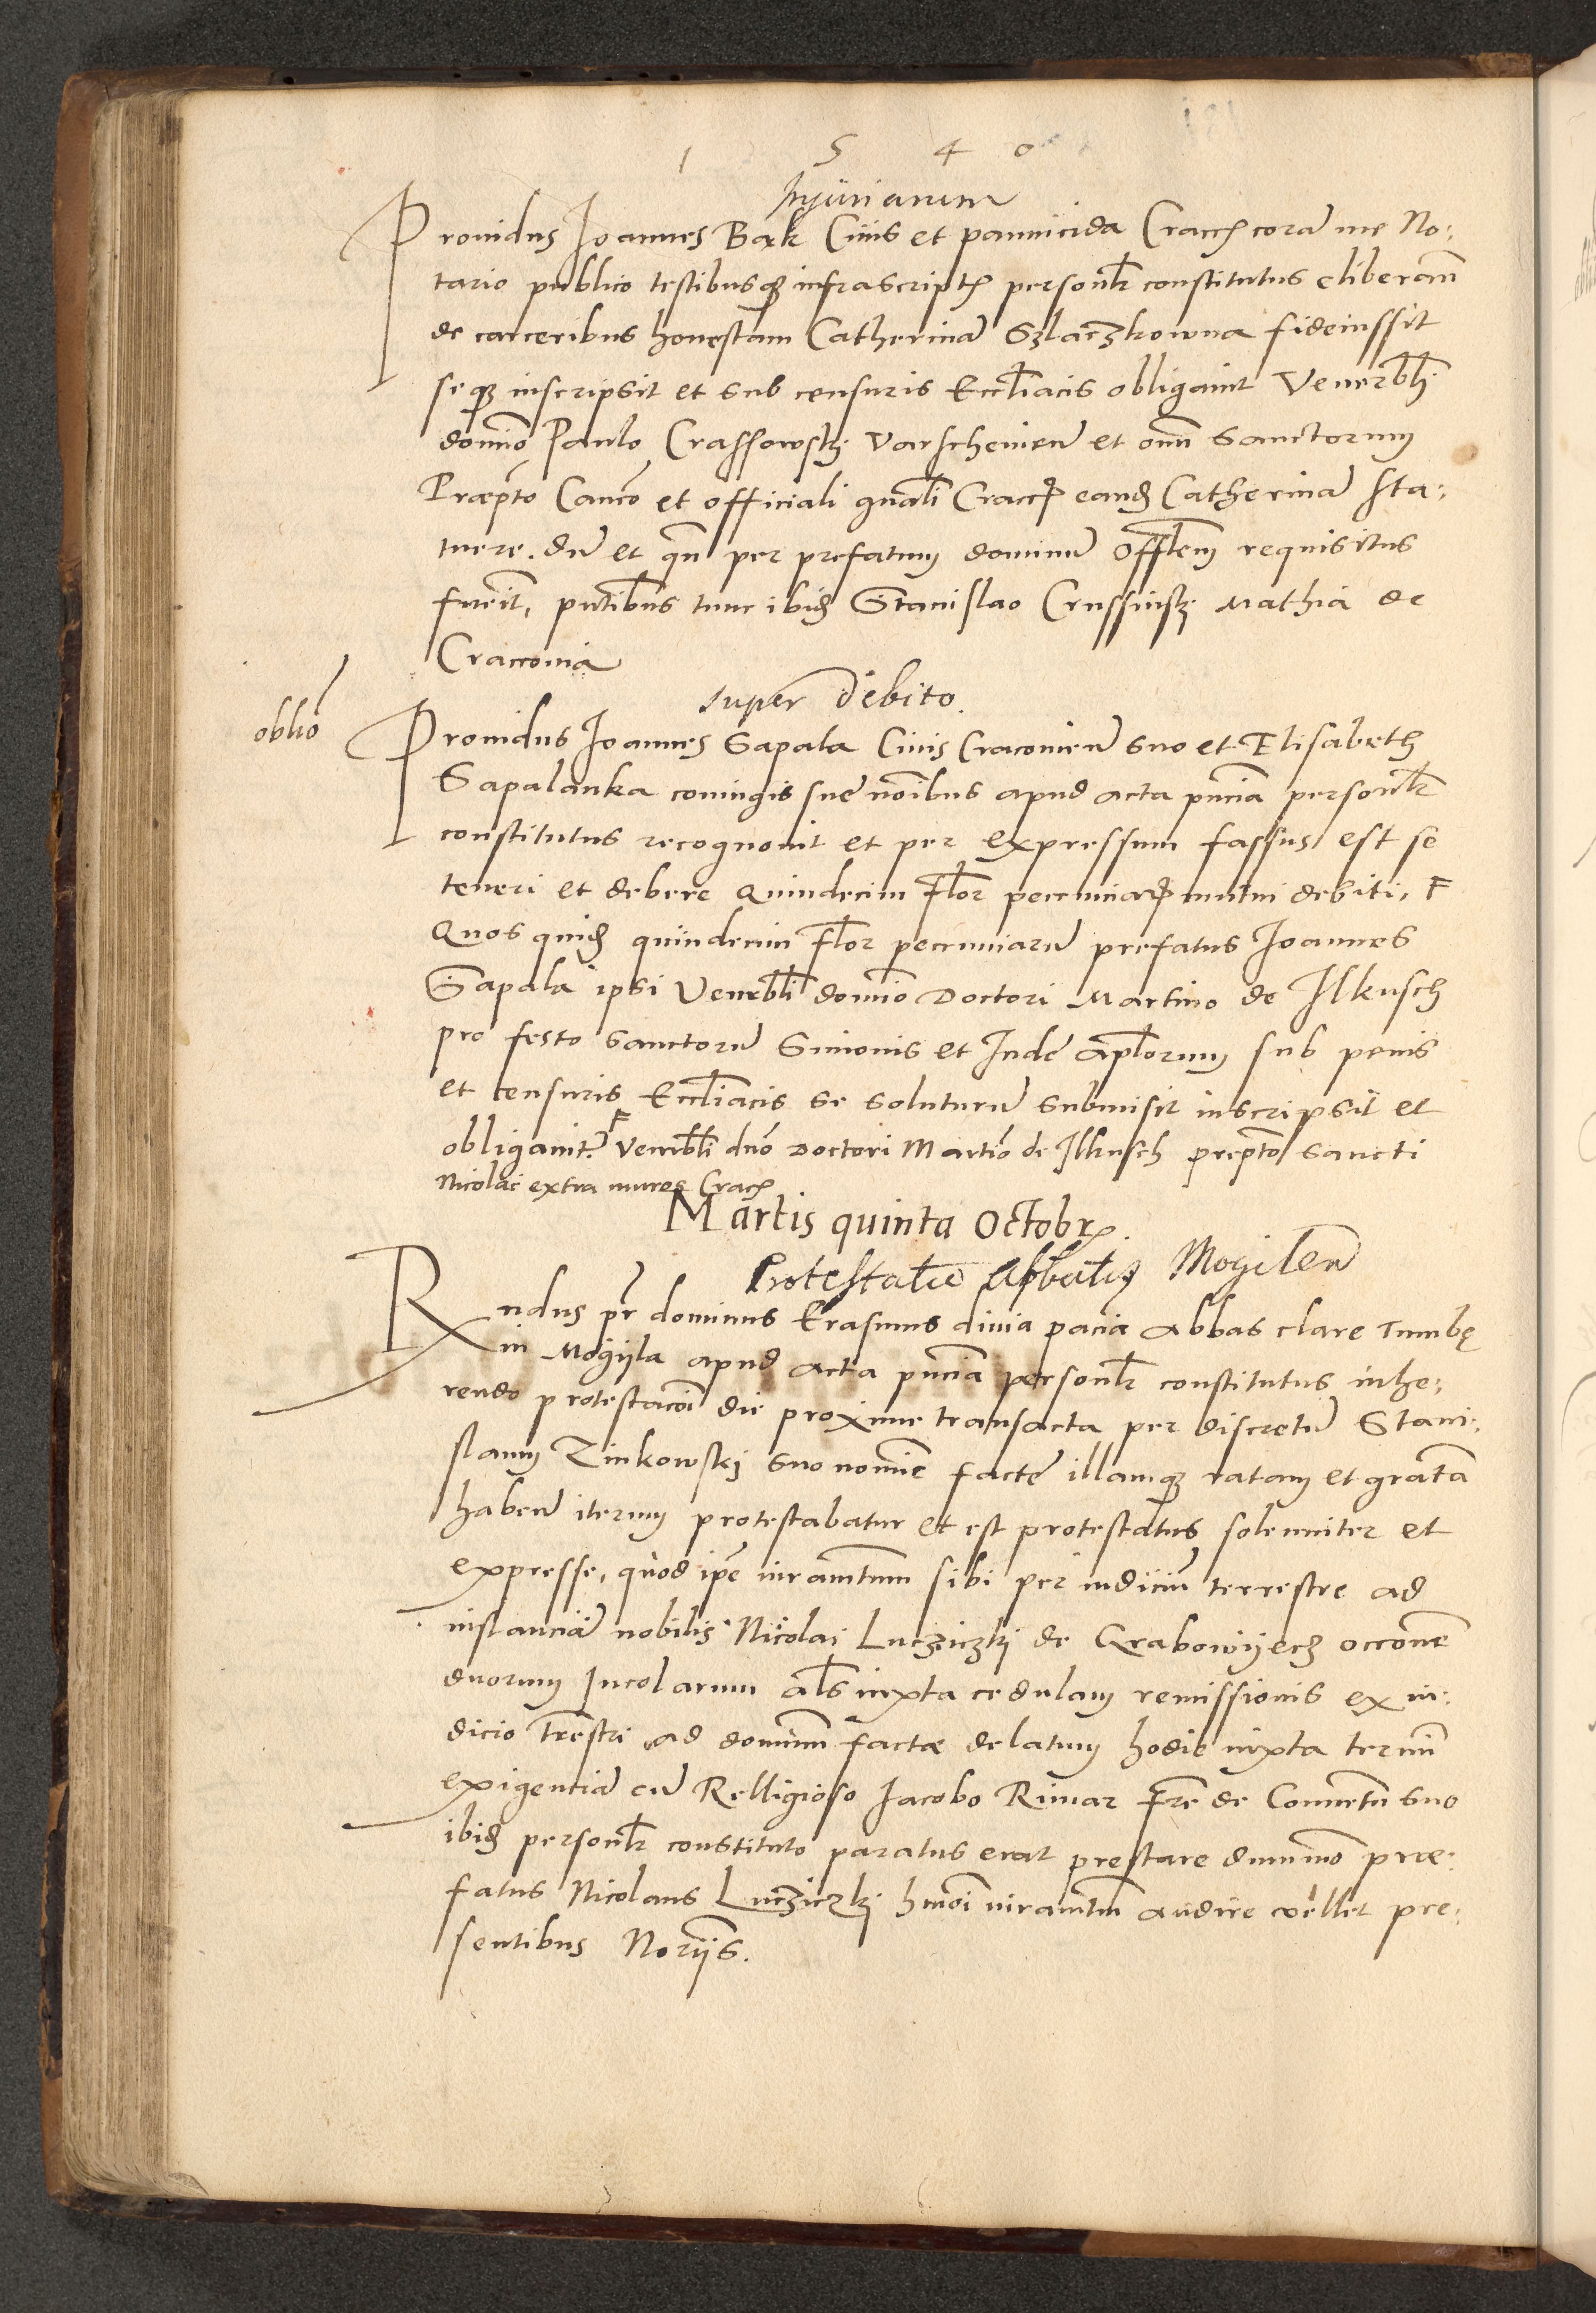 1 5 4 0
Injuriarum
Prouidus Joannes Bak Ciuis et pannicida Cracc̄ corā me No:
tario publico testibusq̄ infrascriptꝭ personlr̄ constitutus eliberan̄
de carceribus honestam Catherinā Szlaczkowna fideiussit
seq̄ inscripsit et sub censuris Eccl̄iacis obligauit Venerbl̄i
domīo Paulo Crassowskj Varschevien̄ et om̄ Sanctorum
Præpto Canco et officiali gnāli Cracc̄ eand̄ Catherinā sta:
tuere. dū et qn̄ per prefatum dominū Offl̄em requisitus
fuerit, pn̄tibus tunc ibid̄ Stanislao Crussinskj Mathia de
Cracouia
super debito.
oblio
Prouidus Joannes Sapala Ciuis Cracouien̄ suo et Elisabeth
Sapalanka coniugis suę noībus apud acta pn̄cia personlr̄
constitutus recognouit et per expressum fassus est se
teneri et debere quindecim Flor̄ pecuniarꝭ mutui debiti, F
Quos quid̄ quindecim Flor̄ pecuniarū prefatus Joannes
Sapala ipsi Venerbl̄i domīo Doctori Martino de Ilkusch
pro festo Sanctorū Simonis et Iudę apl̄orum sub penis
et censuris Eccl̄iacis se soluturū submisit inscripsit et
obligauit. F Venerbl̄i dn̄o Doctori Martīo de Ilkusch prepto Sancti
Nicolai extra muros Cracꝭ
Martis quinta Octobrꝭ.
Protestatio Abbatis Mogilen̄
Rn̄dus pr̄ dominus Erasmus diuīa pacīa Abbas clare Tumbę
in Mogijla apud acta pn̄cia personlr̄ constitutus inhe:
rendo protestacōi die proxime transacta per discretū Stani:
slaum Zinkowskj suo nomīe factę illamq̄ ratam et gratā
haben̄ iterum protestabatur et est protestatus solenniter et
expresse, quod ipse iuramentum sibi per iudiciū terrestre ad
instanciā nobilis Nicolai Luczickj de Grabowijecz occōne
duorum Incolarum al̄s iuxta cedulam remissionis ex iu:
dicio trestri ad dominum factæ delatum hodie iuxta termini
exigenciā cū Relligioso Jacobo Rimar fr̄e de Conuentu suo
ibid̄ personlr̄ constituto paratus erat prestare dummodo præ:
fatus Nicolaus Luczickj hm̄oi iuramentum audire vellet pre:
sentibus Norijs.